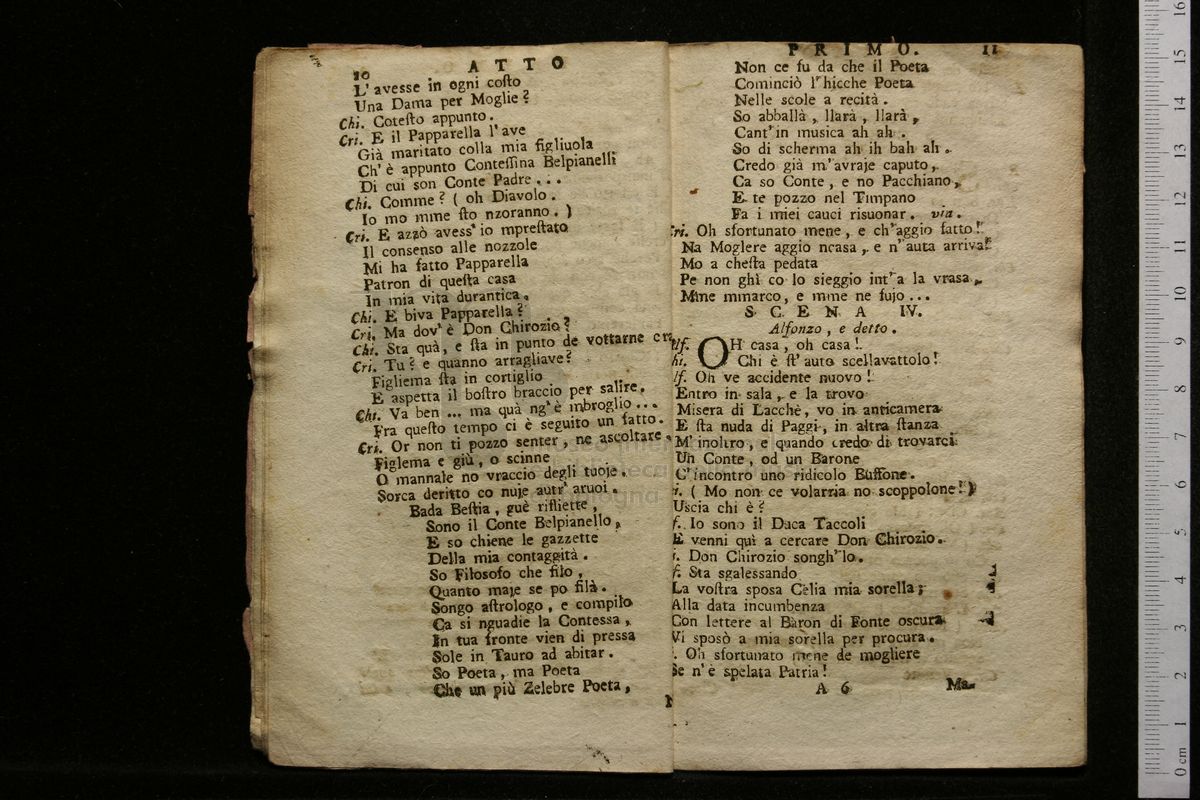 10 ATTO
L' avesse in ogni coſto
Una Dama per Moglie?
Chi. Coteſto appunto.
Cri. E il Papparella l'ave
Già maritato colla mia figliuola
Ch' è appunto Conteſſina Belpianelli
Di cui son Conte Padre...
Chi. Comme? (oh Diavolo.
Io mo mme ſto nzoranno.)
Cri. E azzò avess' io mpreſtato
Il consenso alle nozzole
Mi ha fatto Papparella
Patron di queſta casa
In mia vita durantica.
Chi. E biva Papparella?
Cri. Ma dov' è Don Chirozio?
Chi. Sta quà, e ſta in punto de vottarne
Cri. Tu? e quanno arragliave?
Figliema ſta in cortiglio
E aspetta il boſtro braccio per salire.
Chi. Va ben ... ma quà ng' è mbroglio...
Fra queſto tempo ci è seguito un fatto.
Cri. Or non ti pozzo senter, ne ascoltare.
Figlema e giù, o scinne
O mannale no vraccio degli tuoje.
Sorca deritto co nuje autr' aruoi.
Bada Beſtia, guè rifliette,
Sono il Conte Belpianello,
E so chiene le gazzette
Della mia contaggità.
So Filosofo che filo,
Quanto maje se po filà.
Songo aſtrologo, e compilo
Ca si nguadie la Contessa,
In tua fronte vien di pressa
Sole in Tauro ad abitar.
So Poeta, ma Poeta
Che un più Zelebre Poeta,
PRIMO. 11
Non ce fu da che il Poeta
Cominciò l'hicche Poeta
Nelle scole a recità.
So abballà, llarà, llarà,
Cant' in musica ah ah.
So di scherma ah ih bah ah.
Credo già m'avraje caputo,
Ca so Conte, e no Pacchiano,
E te pozzo nel Timpano
Fa i miei cauci risuonar. via.
Cri. Oh sfortunato mene, e ch'aggio fatto!
Na Moglere aggio ncasa, e n'auta arriva!
Mo a cheſta pedata
Pe non ghì co lo sieggio int' a la vrasa,
Mme mmarco, e mme ne fujo...
SCENA IV.
Alfonzo, e detto.
Alf. OH casa, oh casa!
Chi. Chi è ſt' auto scellavattolo!
Alf. Oh ve accidente nuovo!
Entro in sala, e la trovo
Misera di Lacchè, vo in anticamera
E ſta nuda di Paggi, in altra ſtanza
M' inoltro, e quando credo di trovarci
Un Conte, od un Barone
C'incontro uno ridicolo Buffone.
i. (Mo non ce volarria no scoppolone!)
Uscia chi è?
f. Io sono il Duca Taccoli
E venni quì a cercare Don Chirozio.
i. Don Chirozio songh' lo.
f. Sta sgalessando
La voſtra sposa Celia mia sorella;
Alla data incumbenza
Con lettere al Baron di Fonte oscura
Vi sposò a mia sorella per procura.
. Oh sfortunato mene de mogliere
Se n' è spelata Patria!
A 6 Ma-